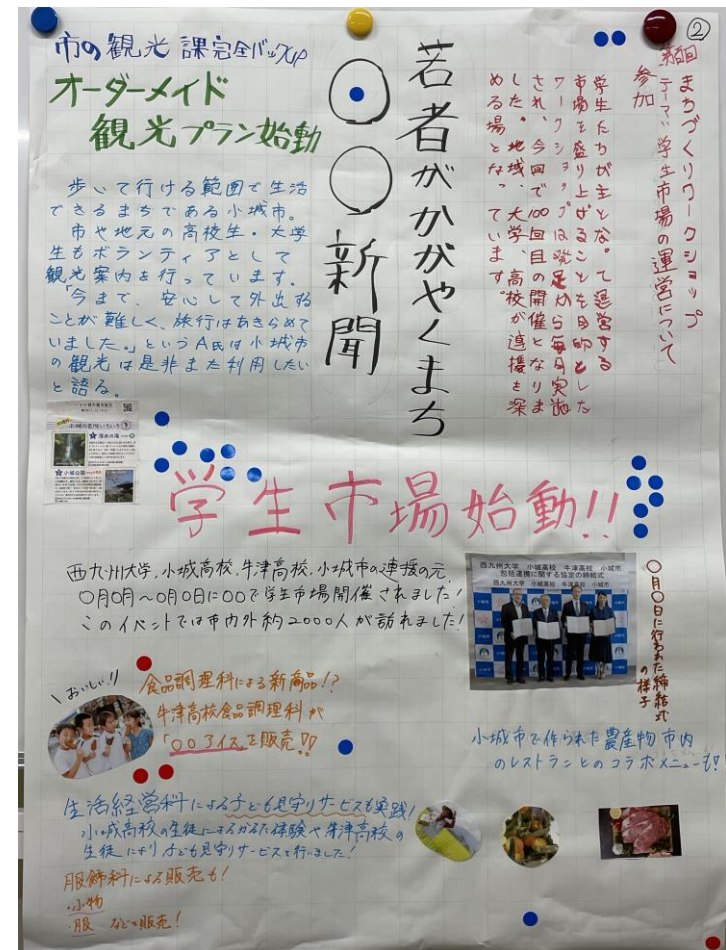 ②
第百回
まちづくりワークショップ
テーマ：学生市場の運営について
参加
学生たちが主となって運営する
市場を盛り上げることを目的とした
ワークショップは発足から毎月実施
され、今回で100回目の開催となりま
した。地域、大学、高校が連携を深
める場となっています。
若者がかがやくまち
〇〇新聞
市の観光課完全バックUP
オーダーメイド
観光プラン始動
歩いて行ける範囲で生活
できるまちである小城市。
市や地元の高校生・大学
生もボランティアとして
観光案内を行っています。
「今まで、安心して外出する
ことが難しく、旅行はあきらめて
いました。」というA氏は小城市
の観光は是非また利用したい
と語る。
清水の滝
小城公園
学生市場始動!!
西九州大学、小城高校、牛津高校、小城市の連携の元、
〇月〇月～〇月〇日に〇〇で学生市場開催されました!
このイベントでは市内外約2000人が訪れました!
西九州大学 小城高校 牛津高校 小城市
包括連携に関する協定の締結式
〇月〇日に行われた締結式
の様子
おいしい!!
食品調理科による新商品!?
牛津高校食品調理科が
「〇〇アイス」を販売!!
小城市で作られた農産物市内
のレストランとのコラボメニューも!!
生活経営科による子ども見守りサービスも実践!
小城高校の生徒によるかるた体験や牛津高校の
生徒により、子ども見守りサービスを行いました!
服飾科による販売も!
・小物
・服 などを販売!